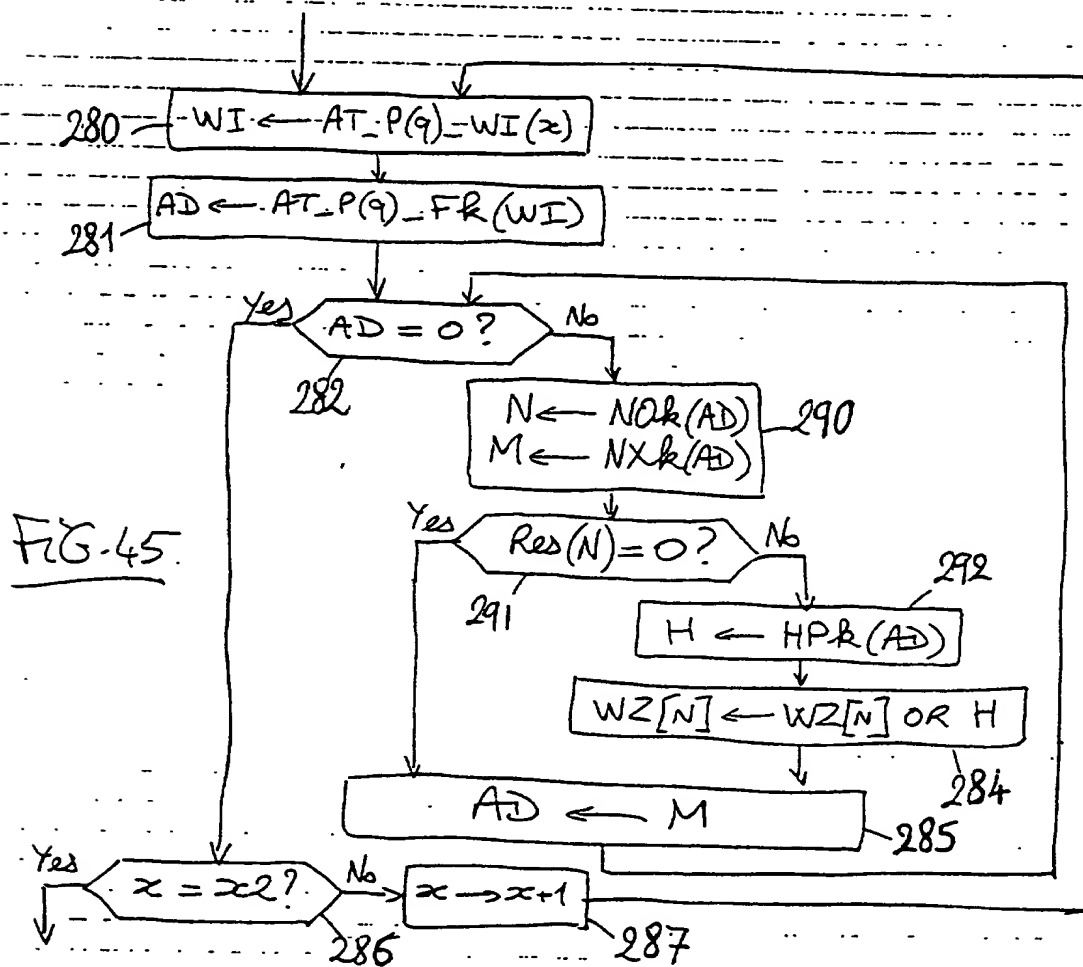 280 WI ← AT_P(q)_WI(x)
AD ← AT_P(q)_Fk(WI)
281
Yes AD = 0? No
282
N ← NOk(AD) 290
M ← NXk(AD)
FIG.45.
Yes Res(N)=0? No
291
292
H ← HPk(AD)
WZ[N] ← WZ[N] OR H
284
AD ← M
285
Yes x = x2? No x → x+1
286
287